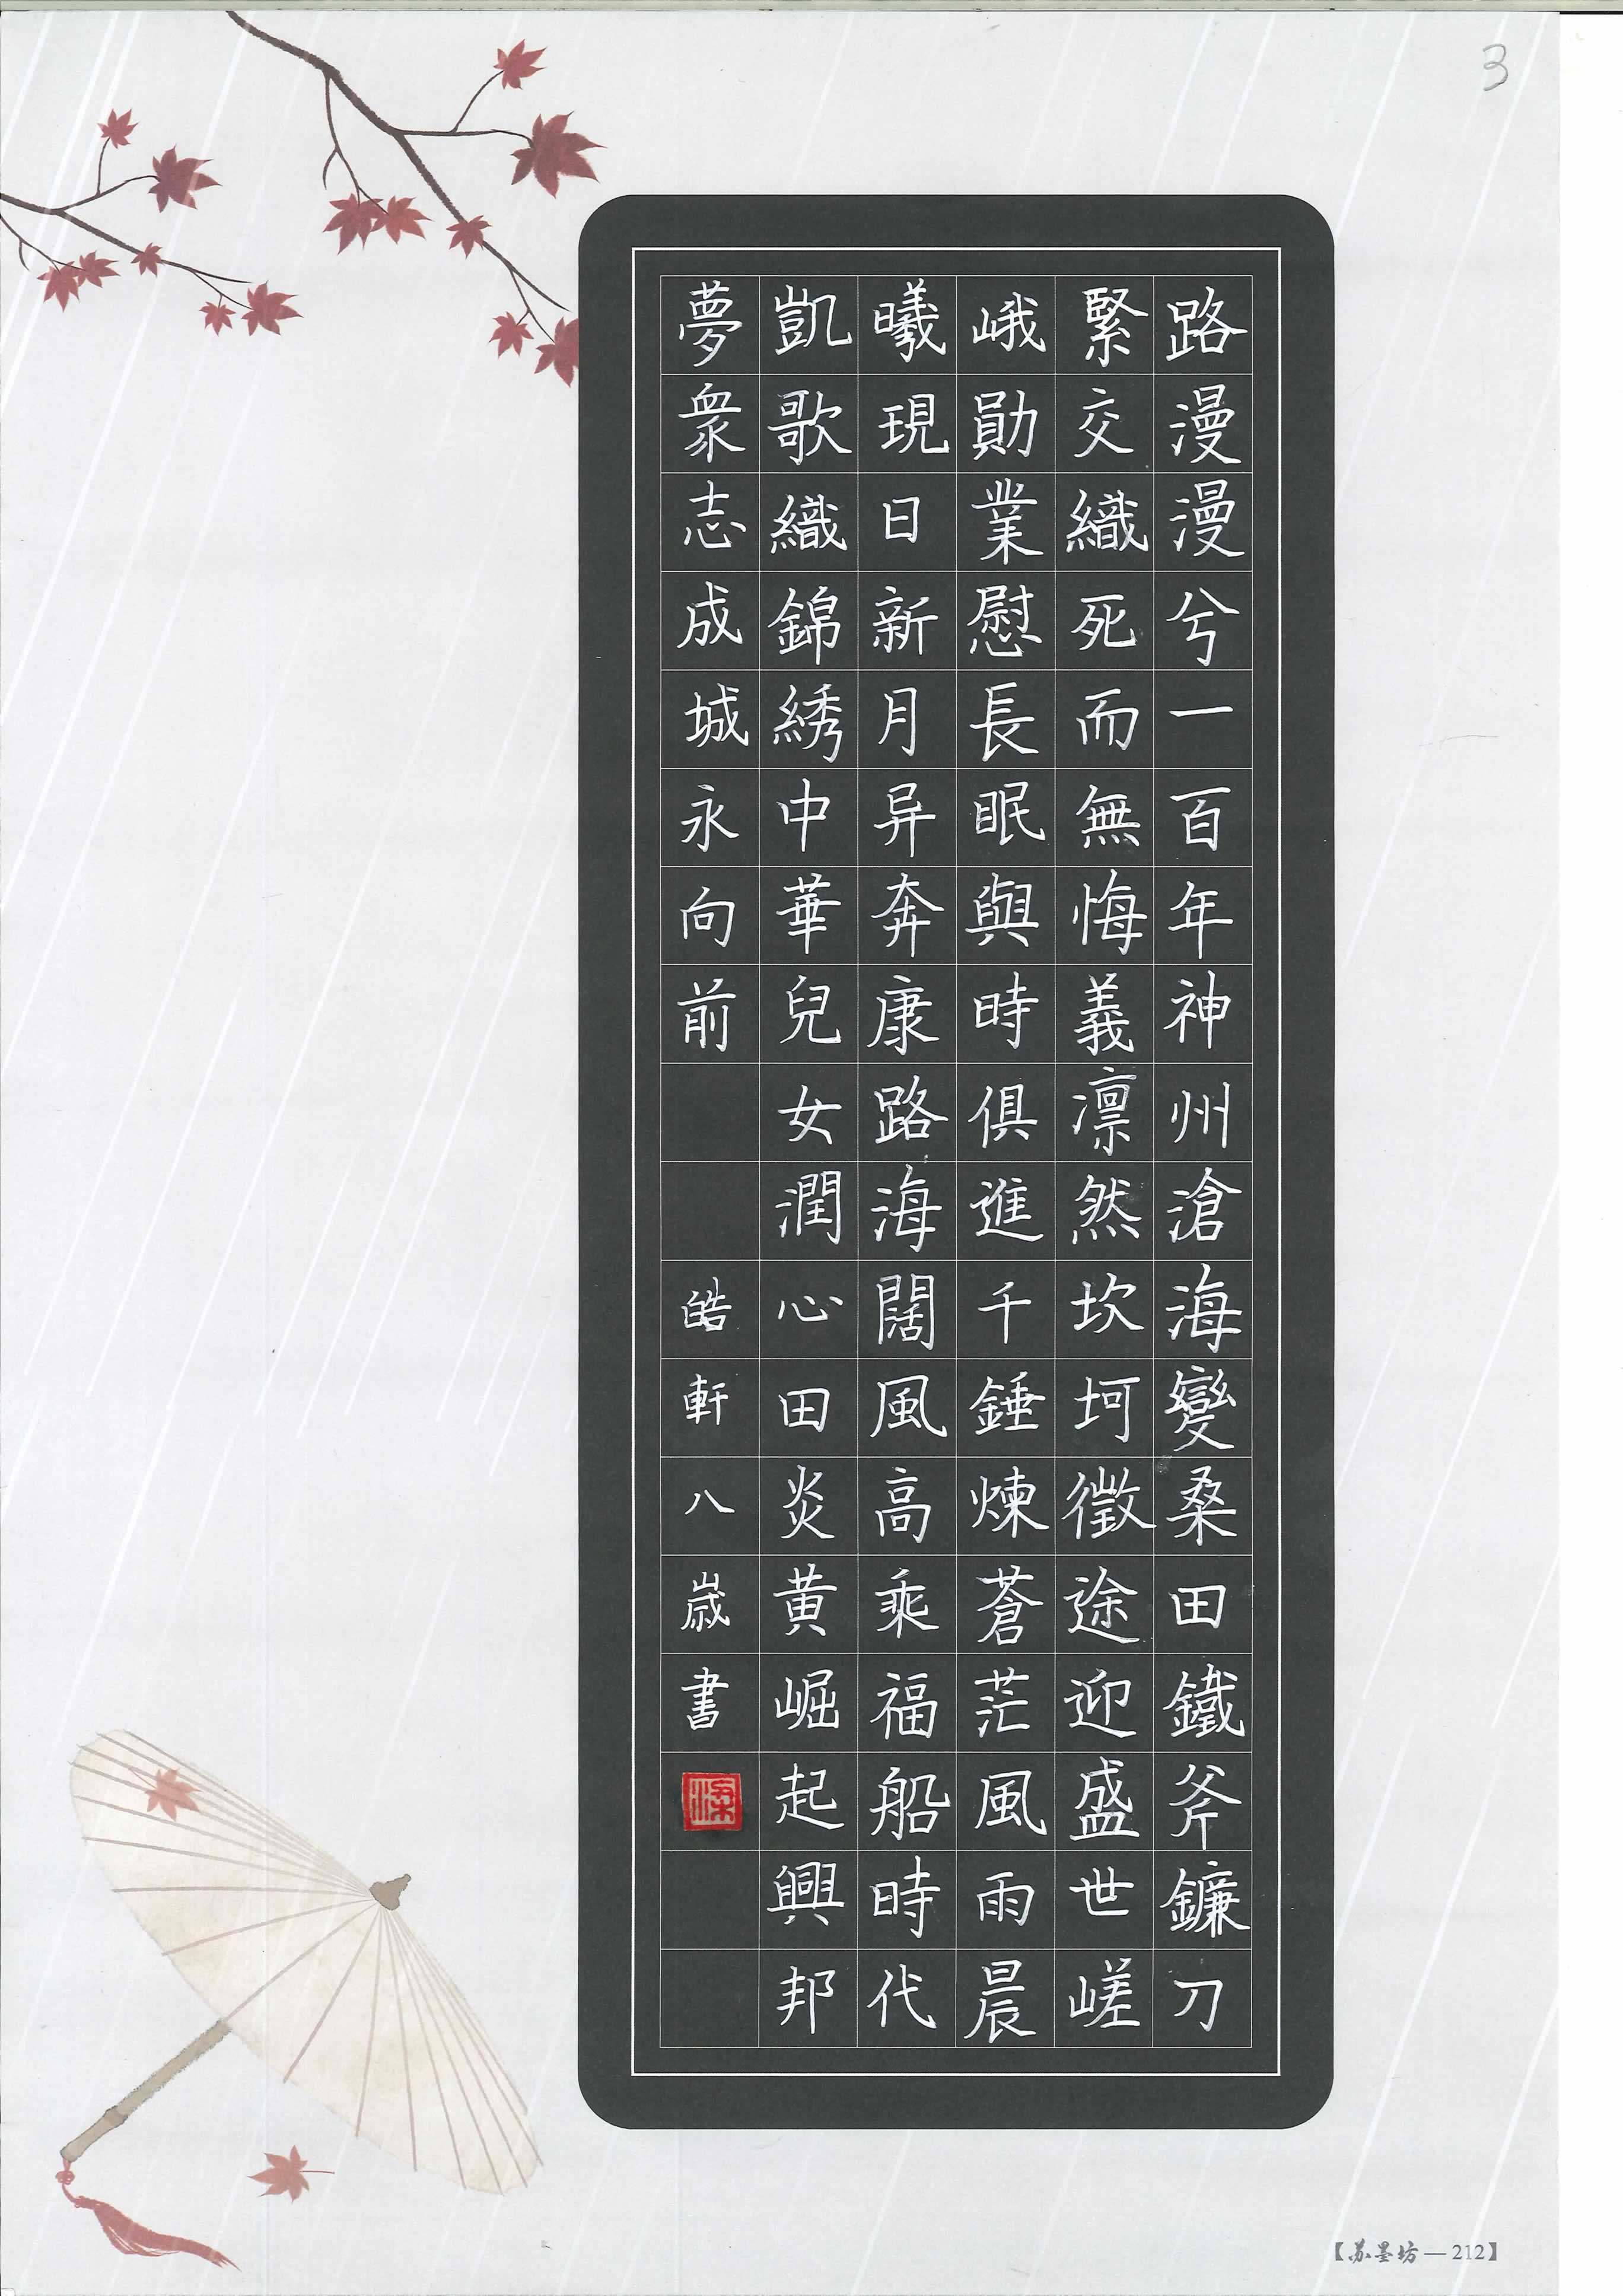 3
路漫漫兮一百年神州滄海變桑田鐵斧鐮刀
緊交織死而無悔義凛然坎坷徵途迎盛世嵯
峨勛業慰長眠與時俱進千錘煉蒼茫風雨晨
曦現日新月异奔康路海闊風高乘福船時代
凱歌織錦綉中華兒女潤心田炎黄崛起興邦
夢衆志成城永向前
皓軒八歲書
【苏墨坊—212】